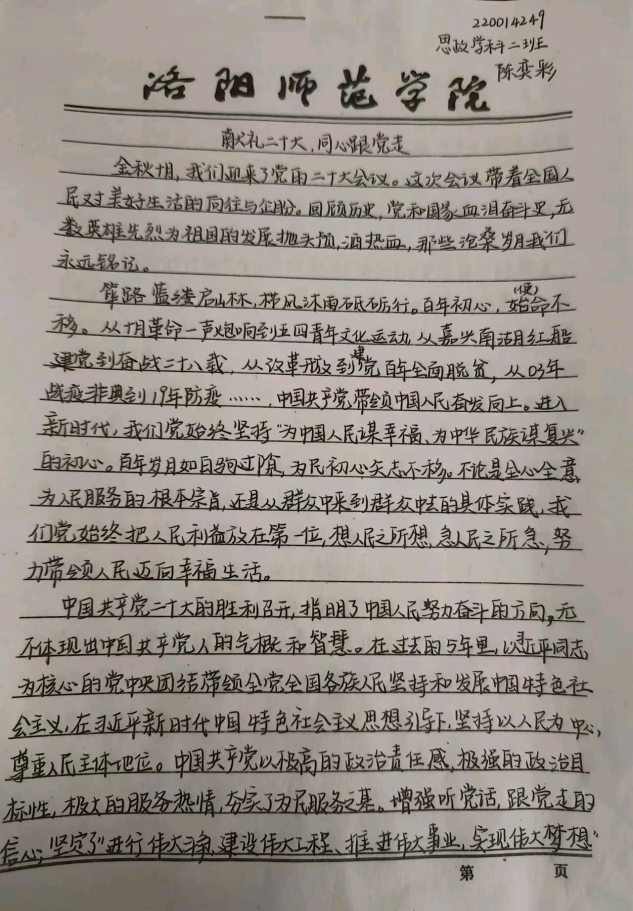 220014249
思政学科二班
陈奕彩
洛阳师范学院
献礼二十大,同心跟党走
金秋十月,我们迎来了党的二十大会议。这次会议带着全国人
民对美好生活的向往与企盼。回顾历史,党和国家血泪奋斗史,无
数英雄先烈为祖国的发展抛头颅,洒热血,那些沧桑岁月我们
永远铭记。
筚路蓝缕启山林,栉风沐雨砥砺行。百年初心,始(使)命不
移。从十月革命一声炮响到五四青年文化运动,从嘉兴南湖红船
建党到奋战二十八载,从改革开放到建党百年全面脱贫,从03年
战疫非典到19年防疫……,中国共产党带领中国人民奋发向上。进入
新时代,我们党始终坚持“为中国人民谋幸福、为中华民族谋复兴”
的初心。百年岁月如白驹过隙,为民初心矢志不移。不论是全心全意
为人民服务的根本宗旨,还是从群众中来到群众中去的具体实践,我
们党始终把人民利益放在第一位,想人民之所想,急人民之所急,努
力带领人民迈向幸福生活。
中国共产党二十大的胜利召开,指明了中国人民努力奋斗的方向,无
不体现出中国共产党人的气概和智慧。在过去的5年里,以习近平同志
为核心的党中央团结带领全党全国各族人民坚持和发展中国特色社
会主义,在习近平新时代中国特色社会主义思想引导下,坚持以人民为中心,
尊重人民主体地位。中国共产党以极高的政治责任感,极强的政治目
标性,极大的服务热情,夯实了为民服务之基。增强听党话,跟党走的
信心;坚定了“进行伟大斗争,建设伟大工程、推进伟大事业,实现伟大梦想”
第 页